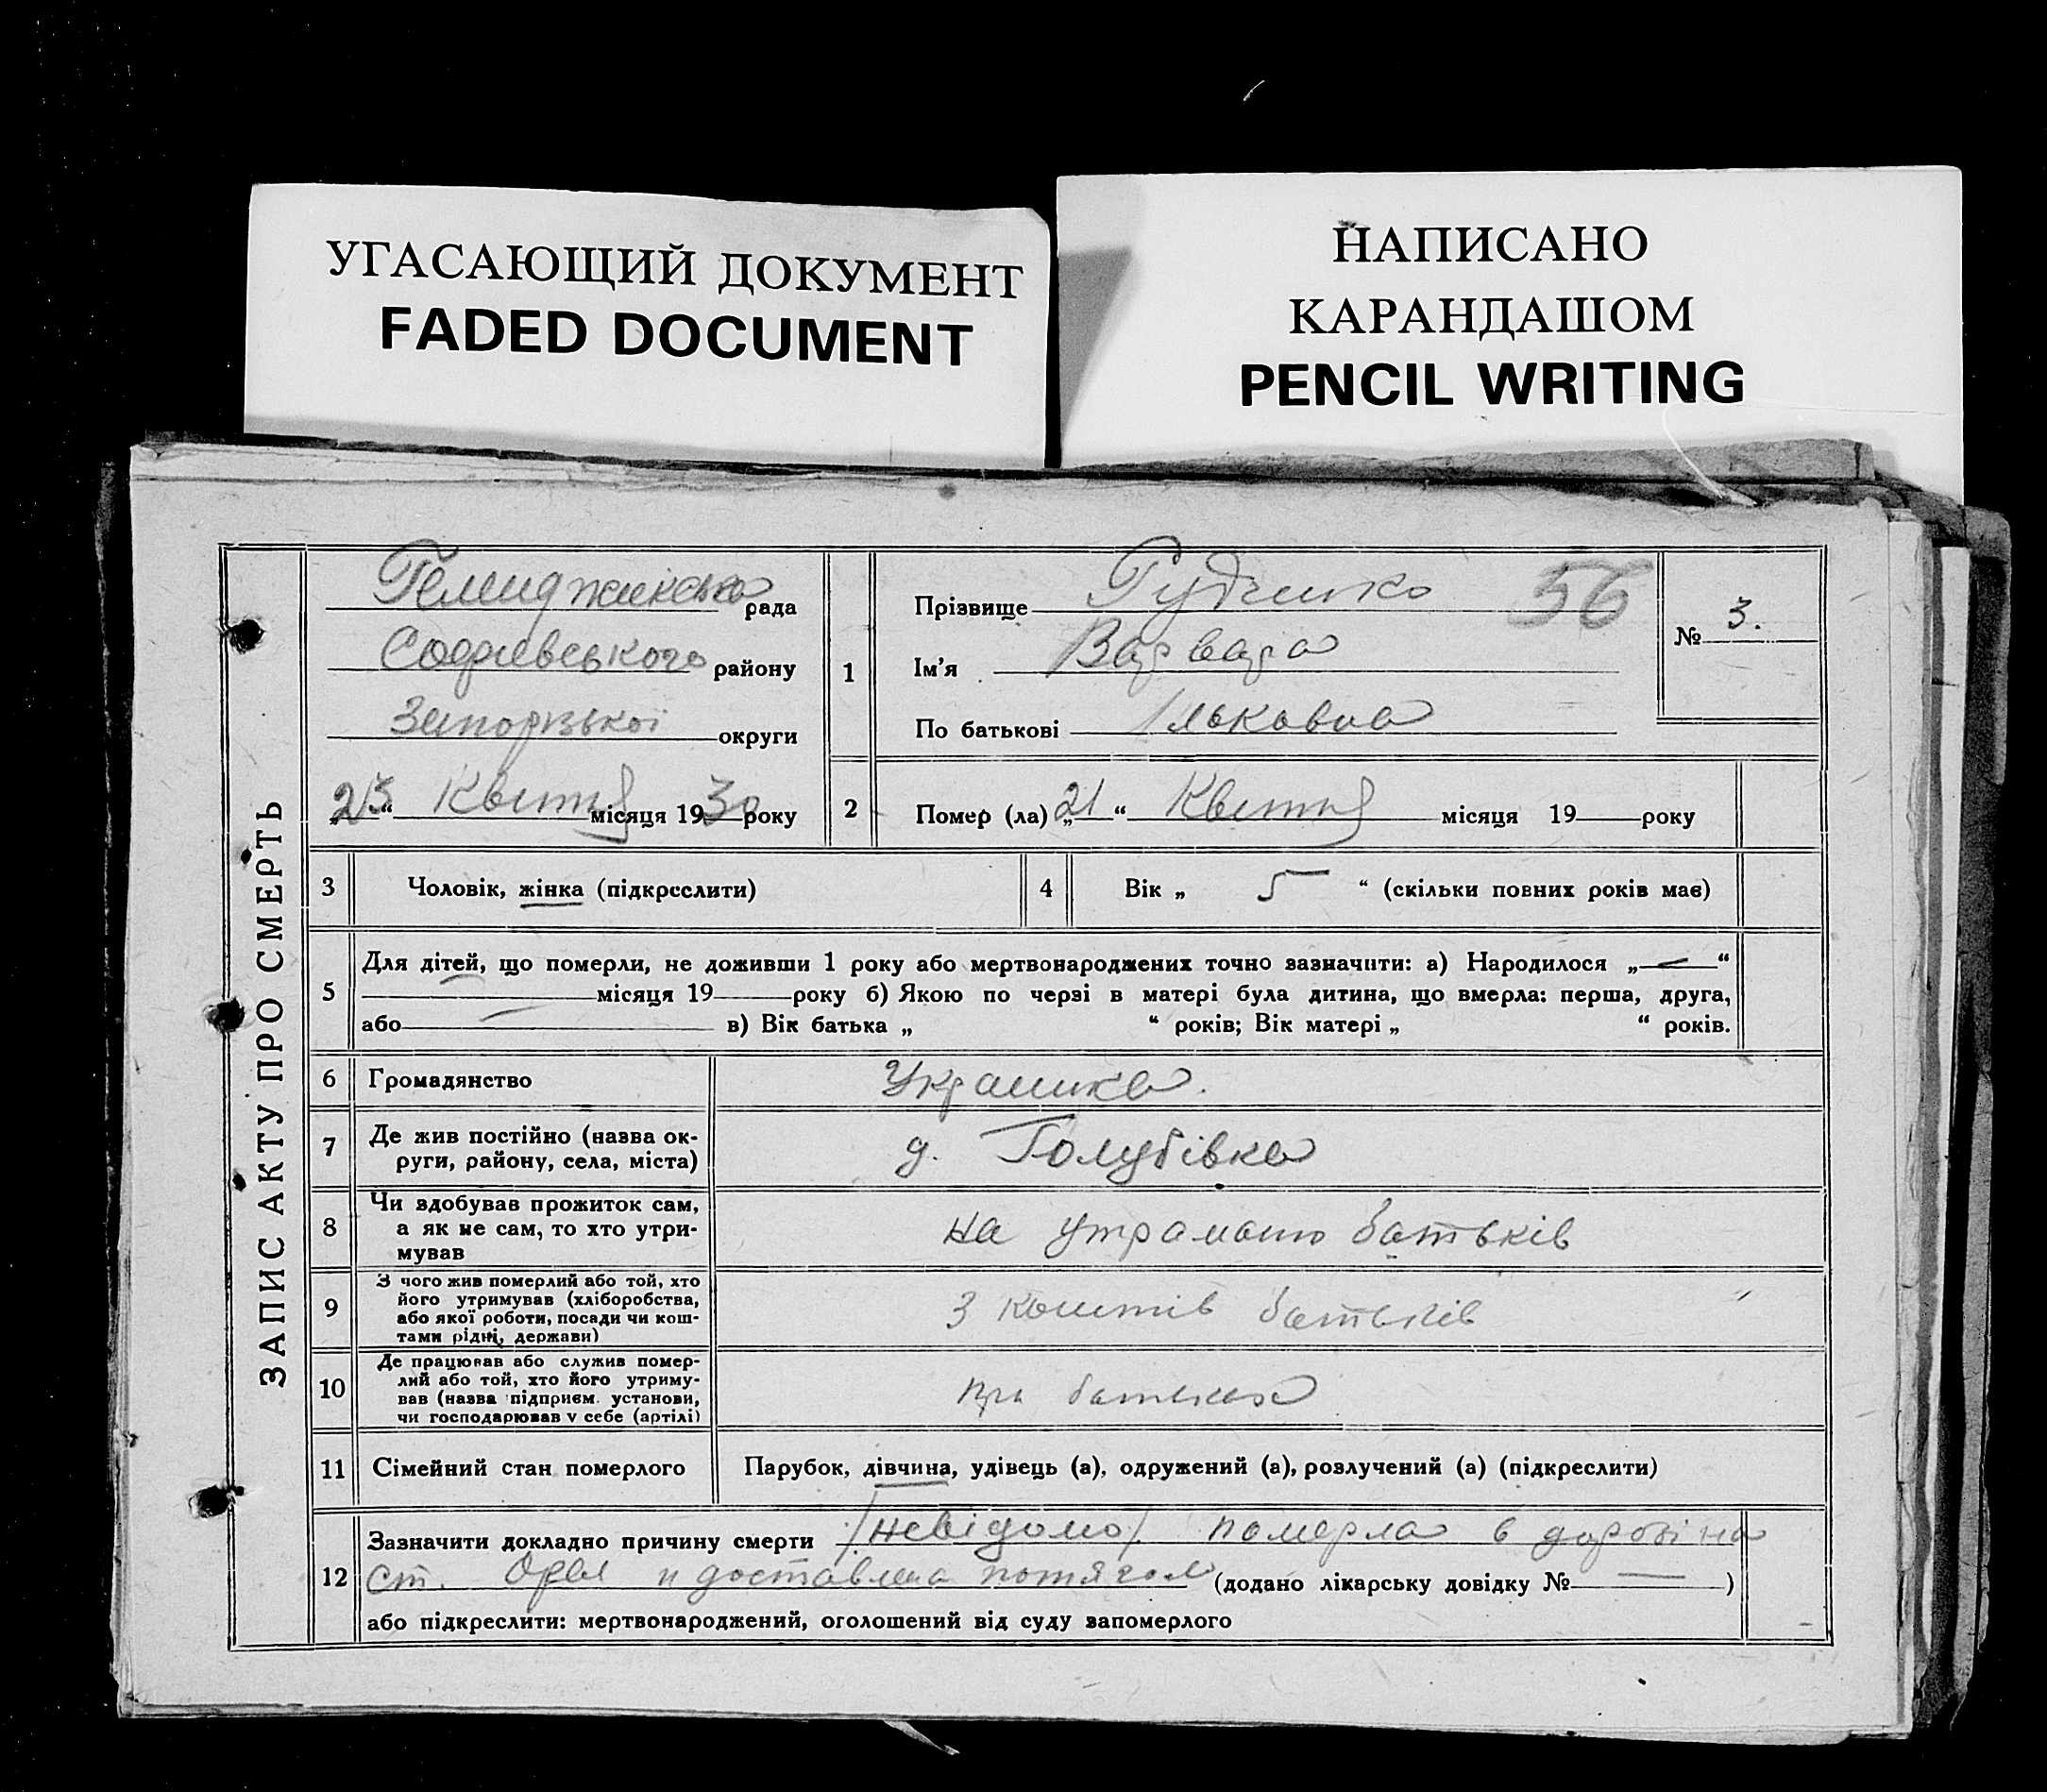 УГАСАЮЩИЙ ДОКУМЕНТ
FADED DOCUMENT
НАПИСАНО
КАРАНДАШОМ
PENCIL WRITING
ЗАПИС АКТУ ПРО СМЕРТЬ
рада
Софіевського району
Запорізької округи
„23“ Квітня місяця 1930 року
1
Прізвище Рудченко 56
Ім'я Варвара
По батькові Ільковна
№ 3.
2 Помер (ла) „21“ Квітня місяця 19 року
3 Чоловік, жінка (підкреслити)
4 Вік „ 5 “ (скільки повних років має)
5 Для дітей, що померли, не доживши 1 року або мертвонароджених точно зазначити: а) Народилося „—“
місяця 19 року б) Якою по черзі в матері була дитина, що вмерла: перша, друга,
або — в) Вік батька „ “ років; Вік матері „ “ років.
6 Громадянство Українка.
7 Де жив постійно (назва ок-
руги, району, села, міста) д. Голубівка
8 Чи здобував прожиток сам,
а як не сам, то хто утри-
мував на утраманю батьків
9 З чого жив померлий або той, хто
його утримував (хліборобства,
або якої роботи, посади чи кош-
тами рідні, держави) З коштів батьків
10 Де працював або служив помер-
лий або той, хто його утриму-
вав (назва підприєм. установи,
чи господарював у себе (артілі) при батьках
11 Сімейний стан померлого Парубок, дівчина, удівець (а), одружений (а), розлучений (а) (підкреслити)
12 Зазначити докладно причину смерти /невідомо/ померла в дорозі на
ст. и доставлена потягом (додано лікарську довідку № — )
або підкреслити: мертвонароджений, оголошений від суду запомерлого